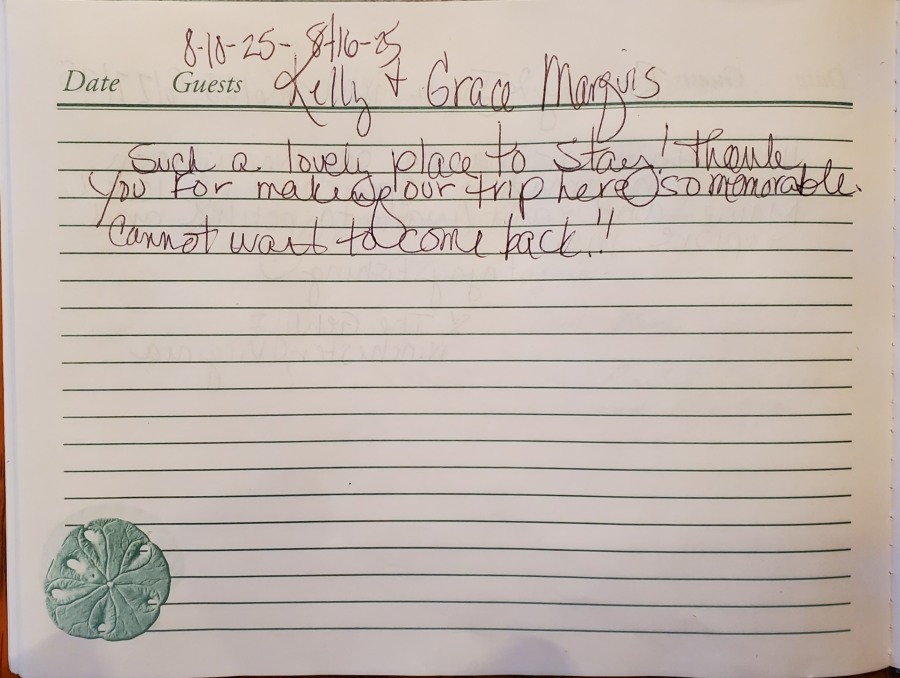 8-10-25- 8-16-25
Date Guests Kelly + Grace Marquis
Such a lovely place to stay! Thank
you for making our trip here so memorable.
Cannot wait to come back!!